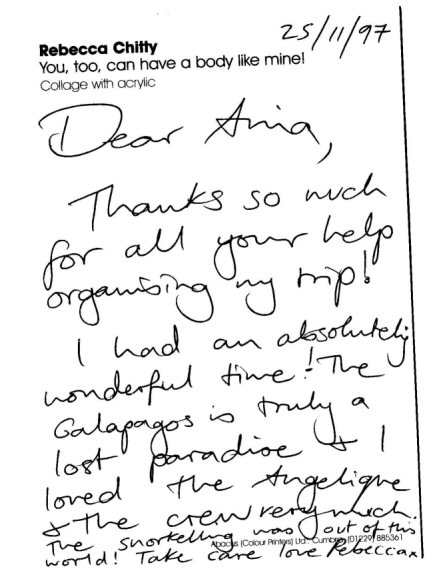 25/11/97
Rebecca Chitty
You, too, can have a body like mine!
Collage with acrylic
Dear Ania,
Thanks so much
for all your help
organising my trip!
I had an absolutely
wonderful time! The
Galapagos is truly a
lost paradise & I
loved the Angelique
& the crew very much.
The snorkelling was out of this
Abacus (Colour Printers) Ltd., Cumbria (01229) 885361
world! Take care love Rebecca x